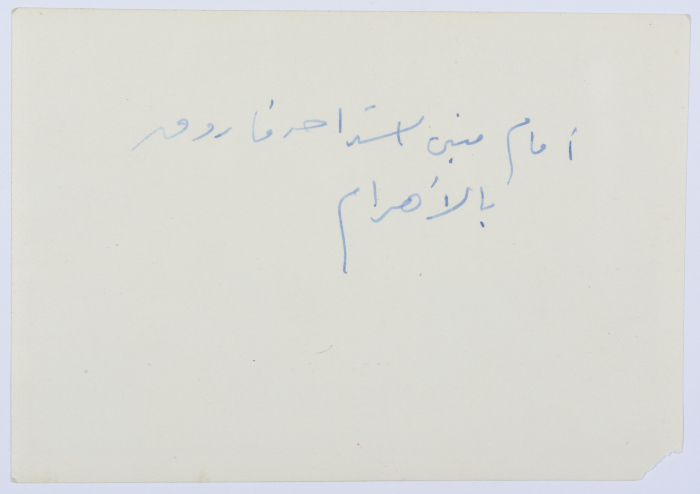 أمام مبنى استراحه فاروق
بالأهرام